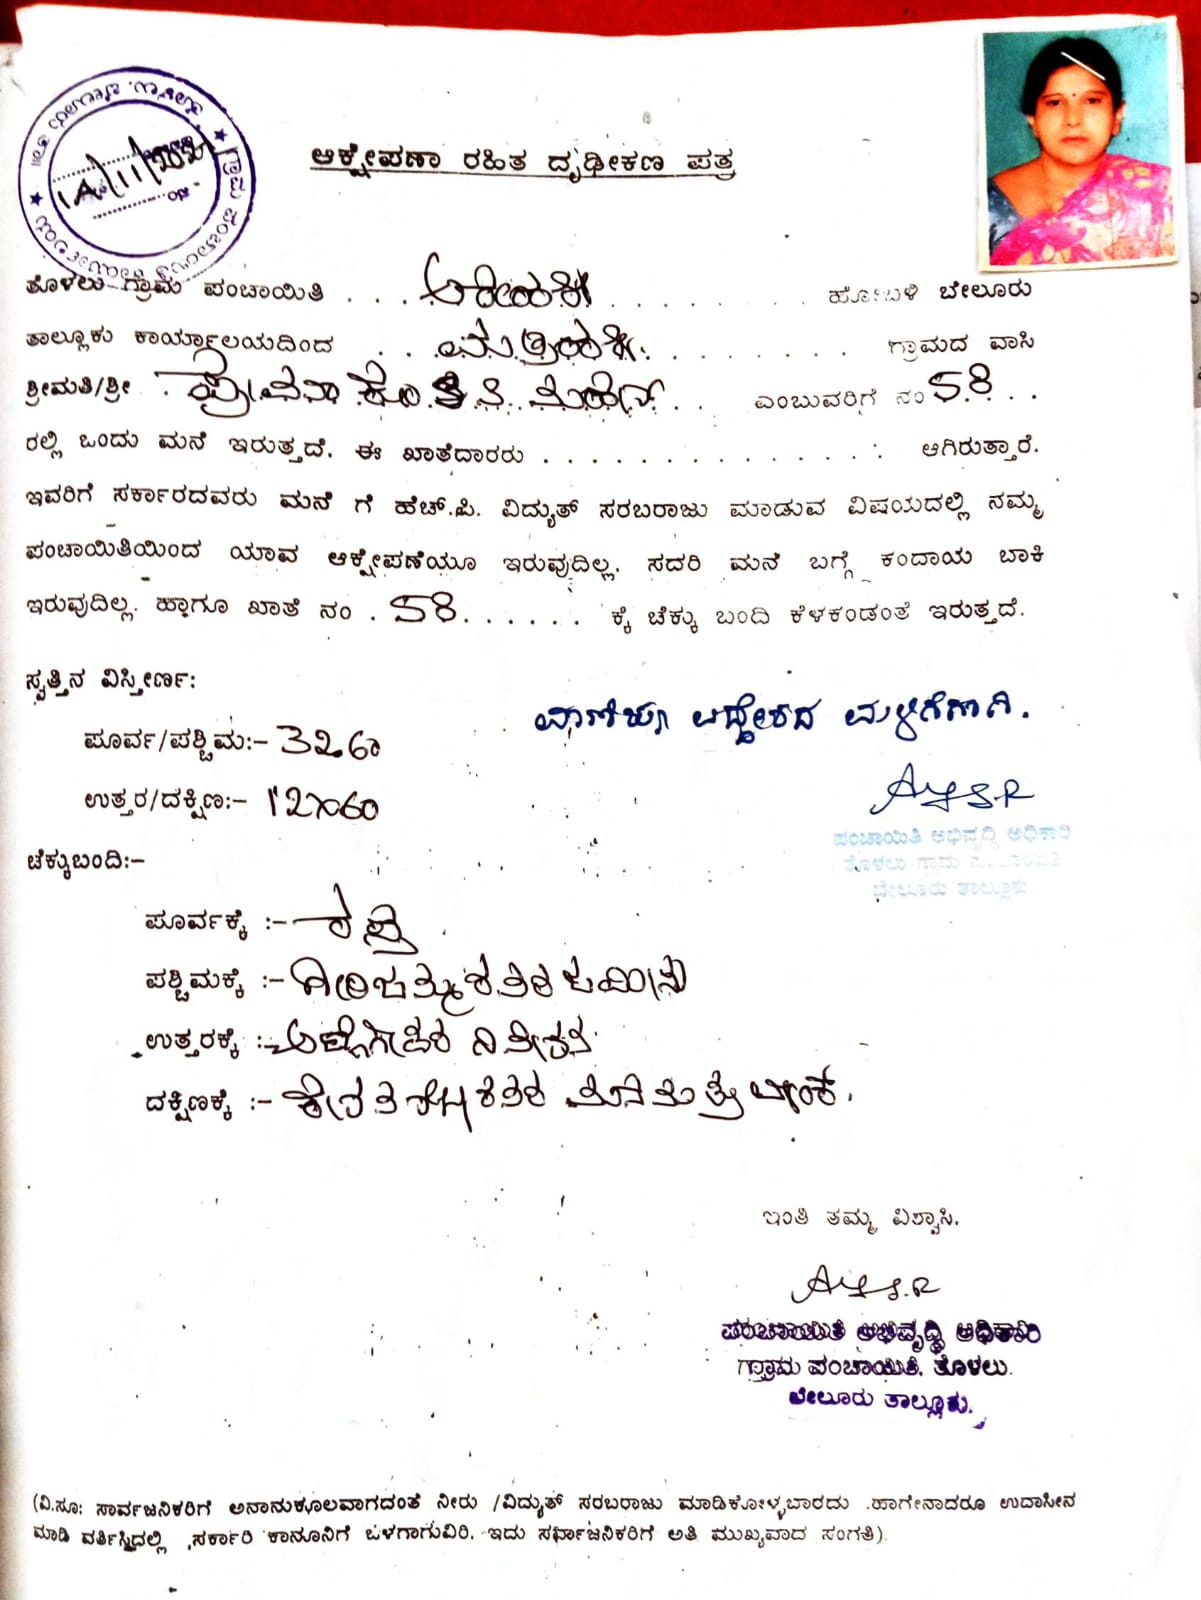 ಗ್ರಾಮ ಪಂಚಾಯಿತಿ ಕಾರ್ಯಾಲಯ ★ ತೊಳಲು, ಬೇಲೂರು ತಾ॥ ★
ಆಕ್ಷೇಪಣಾ ರಹಿತ ದೃಢೀಕಣ ಪತ್ರ
ತೊಳಲು ಗ್ರಾಮ ಪಂಚಾಯಿತಿ . . . ಅರೇಹಳ್ಳಿ . . . . . . . . . ಹೋಬಳಿ ಬೇಲೂರು
ತಾಲ್ಲೂಕು ಕಾರ್ಯಾಲಯದಿಂದ . . . . . . . . . . ಗ್ರಾಮದ ವಾಸಿ
ಶ್ರೀಮತಿ/ಶ್ರೀ . . . ಎಂಬುವರಿಗೆ ನಂ 58 . .
ರಲ್ಲಿ ಒಂದು ಮನೆ ಇರುತ್ತದೆ. ಈ ಖಾತೆದಾರರು . . . . . . . . . . . . . . . . ಆಗಿರುತ್ತಾರೆ.
ಇವರಿಗೆ ಸರ್ಕಾರದವರು ಮನೆ ಗೆ ಹೆಚ್.ಪಿ. ವಿದ್ಯುತ್ ಸರಬರಾಜು ಮಾಡುವ ವಿಷಯದಲ್ಲಿ ನಮ್ಮ
ಪಂಚಾಯಿತಿಯಿಂದ ಯಾವ ಆಕ್ಷೇಪಣೆಯೂ ಇರುವುದಿಲ್ಲ. ಸದರಿ ಮನೆ ಬಗ್ಗೆ ಕಂದಾಯ ಬಾಕಿ
ಇರುವುದಿಲ್ಲ. ಹಾಗೂ ಖಾತೆ ನಂ . 58 . . . . . . ಕ್ಕೆ ಚೆಕ್ಕು ಬಂದಿ ಕೆಳಕಂಡಂತೆ ಇರುತ್ತದೆ.
ಸ್ವತ್ತಿನ ವಿಸ್ತೀರ್ಣ:
ವಾಣಿಜ್ಯ ಉದ್ದೇಶದ ಮಳಿಗೆಗಾಗಿ.
ಪೂರ್ವ/ಪಶ್ಚಿಮ:-
ಉತ್ತರ/ದಕ್ಷಿಣ:-
ಪಂಚಾಯಿತಿ ಅಭಿವೃದ್ಧಿ ಅಧಿಕಾರಿ
ತೊಳಲು ಗ್ರಾಮ
ಬೇಲೂರು ತಾಲ್ಲೂಕು
ಚೆಕ್ಕುಬಂದಿ:-
ಪೂರ್ವಕ್ಕೆ :- ರಸ್ತೆ
ಪಶ್ಚಿಮಕ್ಕೆ :-
ಉತ್ತರಕ್ಕೆ :-
ದಕ್ಷಿಣಕ್ಕೆ :-
ಇಂತಿ ತಮ್ಮ ವಿಶ್ವಾಸಿ.
ಪಂಚಾಯಿತಿ ಅಭಿವೃದ್ಧಿ ಅಧಿಕಾರಿ
ಗ್ರಾಮ ಪಂಚಾಯಿತಿ, ತೊಳಲು.
ಬೇಲೂರು ತಾಲ್ಲೂಕು.
(ವಿ.ಸೂ: ಸಾರ್ವಜನಿಕರಿಗೆ ಅನಾನುಕೂಲವಾಗದಂತೆ ನೀರು /ವಿದ್ಯುತ್ ಸರಬರಾಜು ಮಾಡಿಕೋಳ್ಳಬಾರದು .ಹಾಗೇನಾದರೂ ಉದಾಸೀನ
ಮಾಡಿ ವರ್ತಿಸ್ತಿದಲ್ಲಿ ,ಸರ್ಕಾರಿ ಕಾನೂನಿಗೆ ಒಳಗಾಗುವಿರಿ. ಇದು ಸರ್ವಾಜನಿಕರಿಗೆ ಅತಿ ಮುಖ್ಯವಾದ ಸಂಗತಿ).